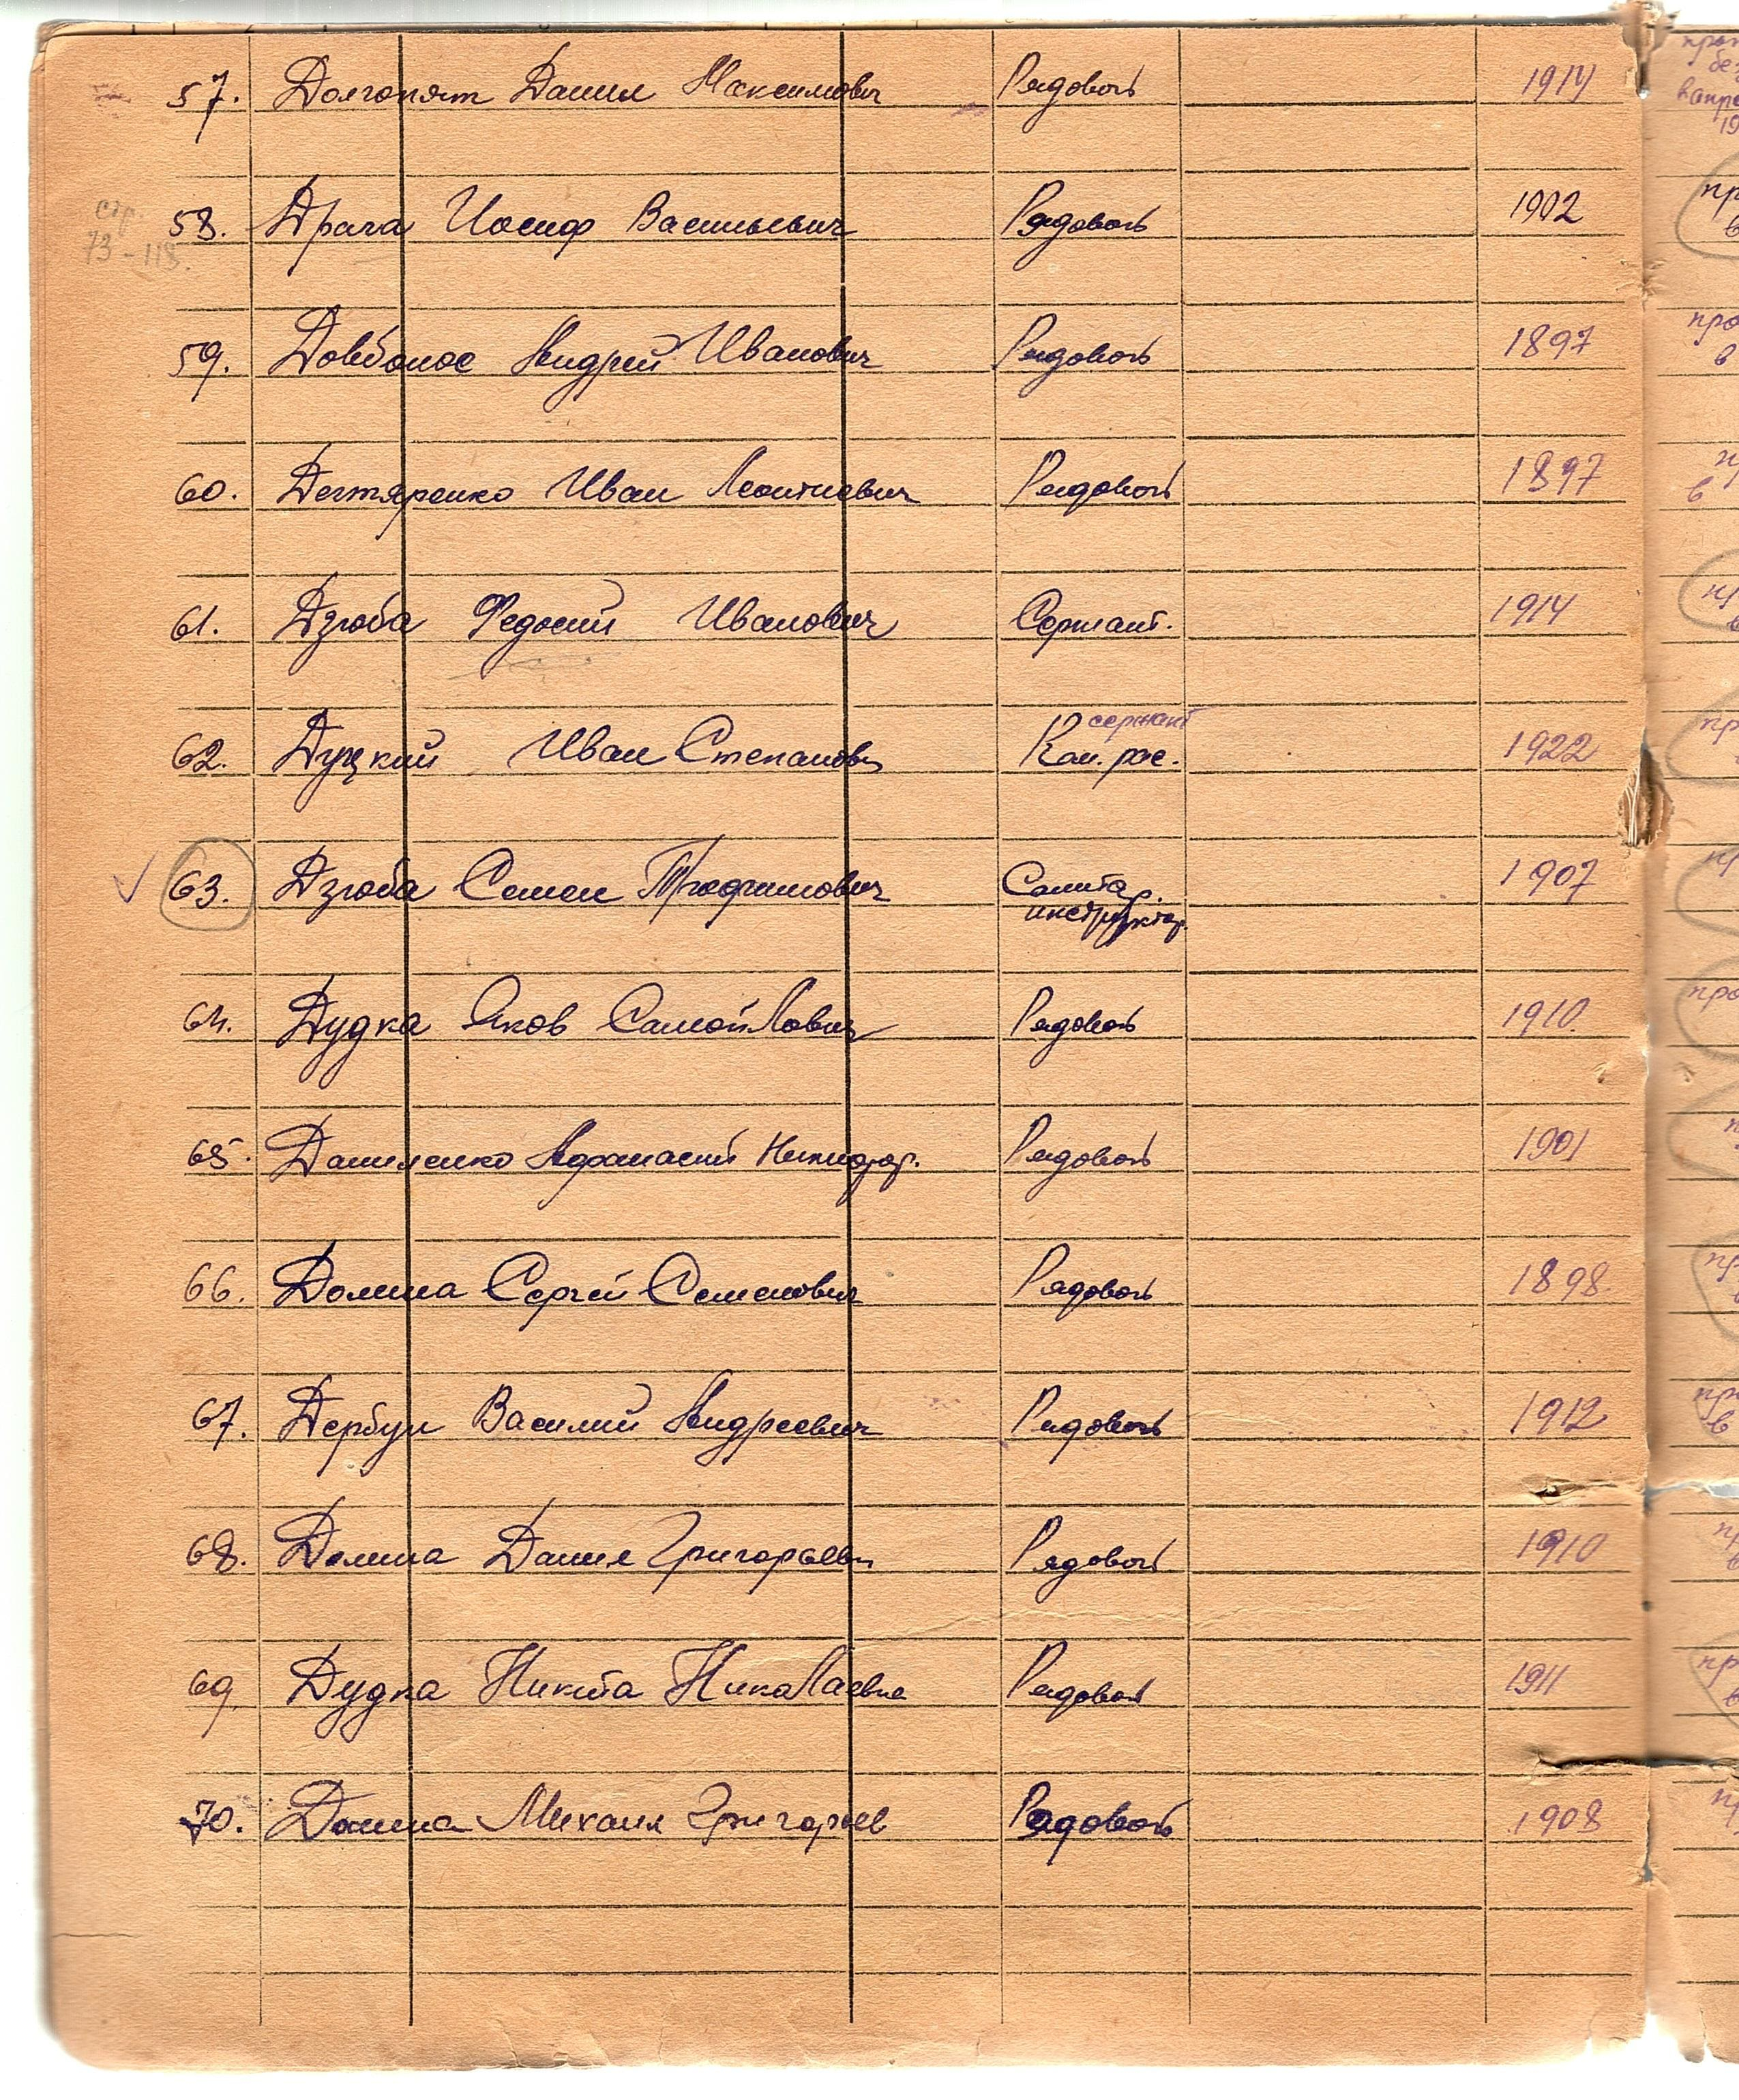 57. Долгопят Данил Максимович Рядовой 1914
стр.
73-118.
58. Драга Иосиф Васильевич Рядовой 1902
59. Довбонос Андрей Иванович Рядовой 1897
60. Дегтяренко Иван Леонтиевич Рядовой 1897
61. Дзюба Федосий Иванович Сержант. 1914
сержант
62. Дуцкий Иван Степанов Кан. рос. 1922
63. Дзюба Семен Трофимович Санитар. 1907
инструктор.
64. Дудка Яков Самойлович Рядовой 1910.
65. Даниленко Афанасий Никифор. Рядовой 1901
66. Долина Сергей Семенович Рядовой 1898.
67. Дербун Василий Андреевич Рядовой 1912
68. Долина Данил Григорьевич Рядовой 1910
69. Дудка Никита Николаевич Рядовой 1911
70. Долина Михаил Григорьев Рядовой 1908